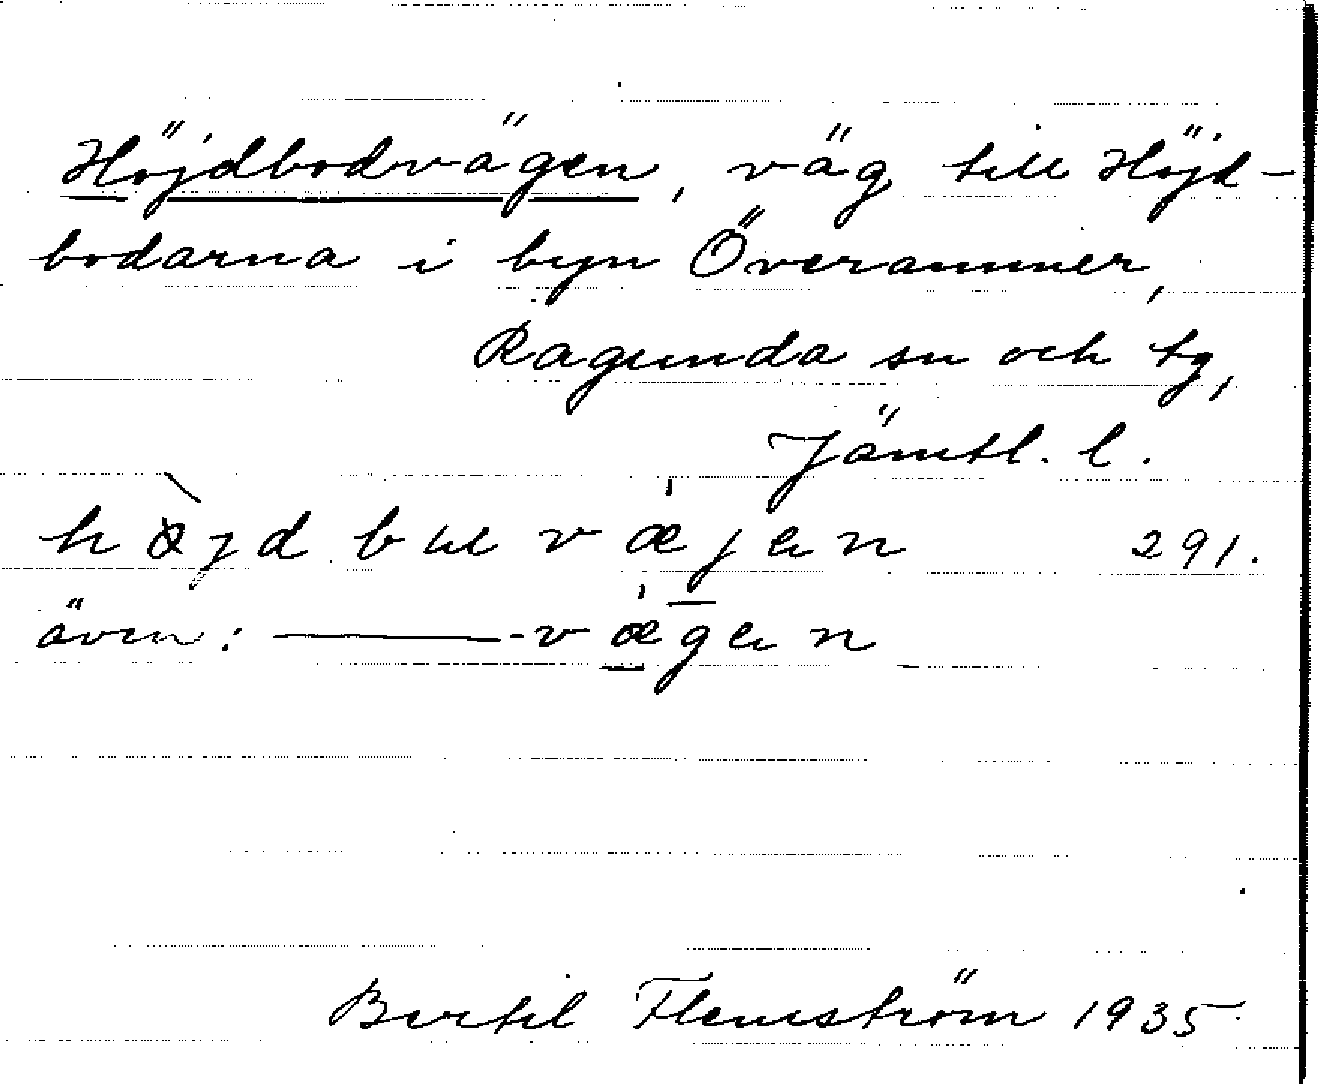 Höjdbodvägen, väg till Höjd-
bodarna i byn Överammer,
Ragunda sn och tg,
Jämtl. l.
291.
även: ——— -vægen
Bertil Flemström 1935